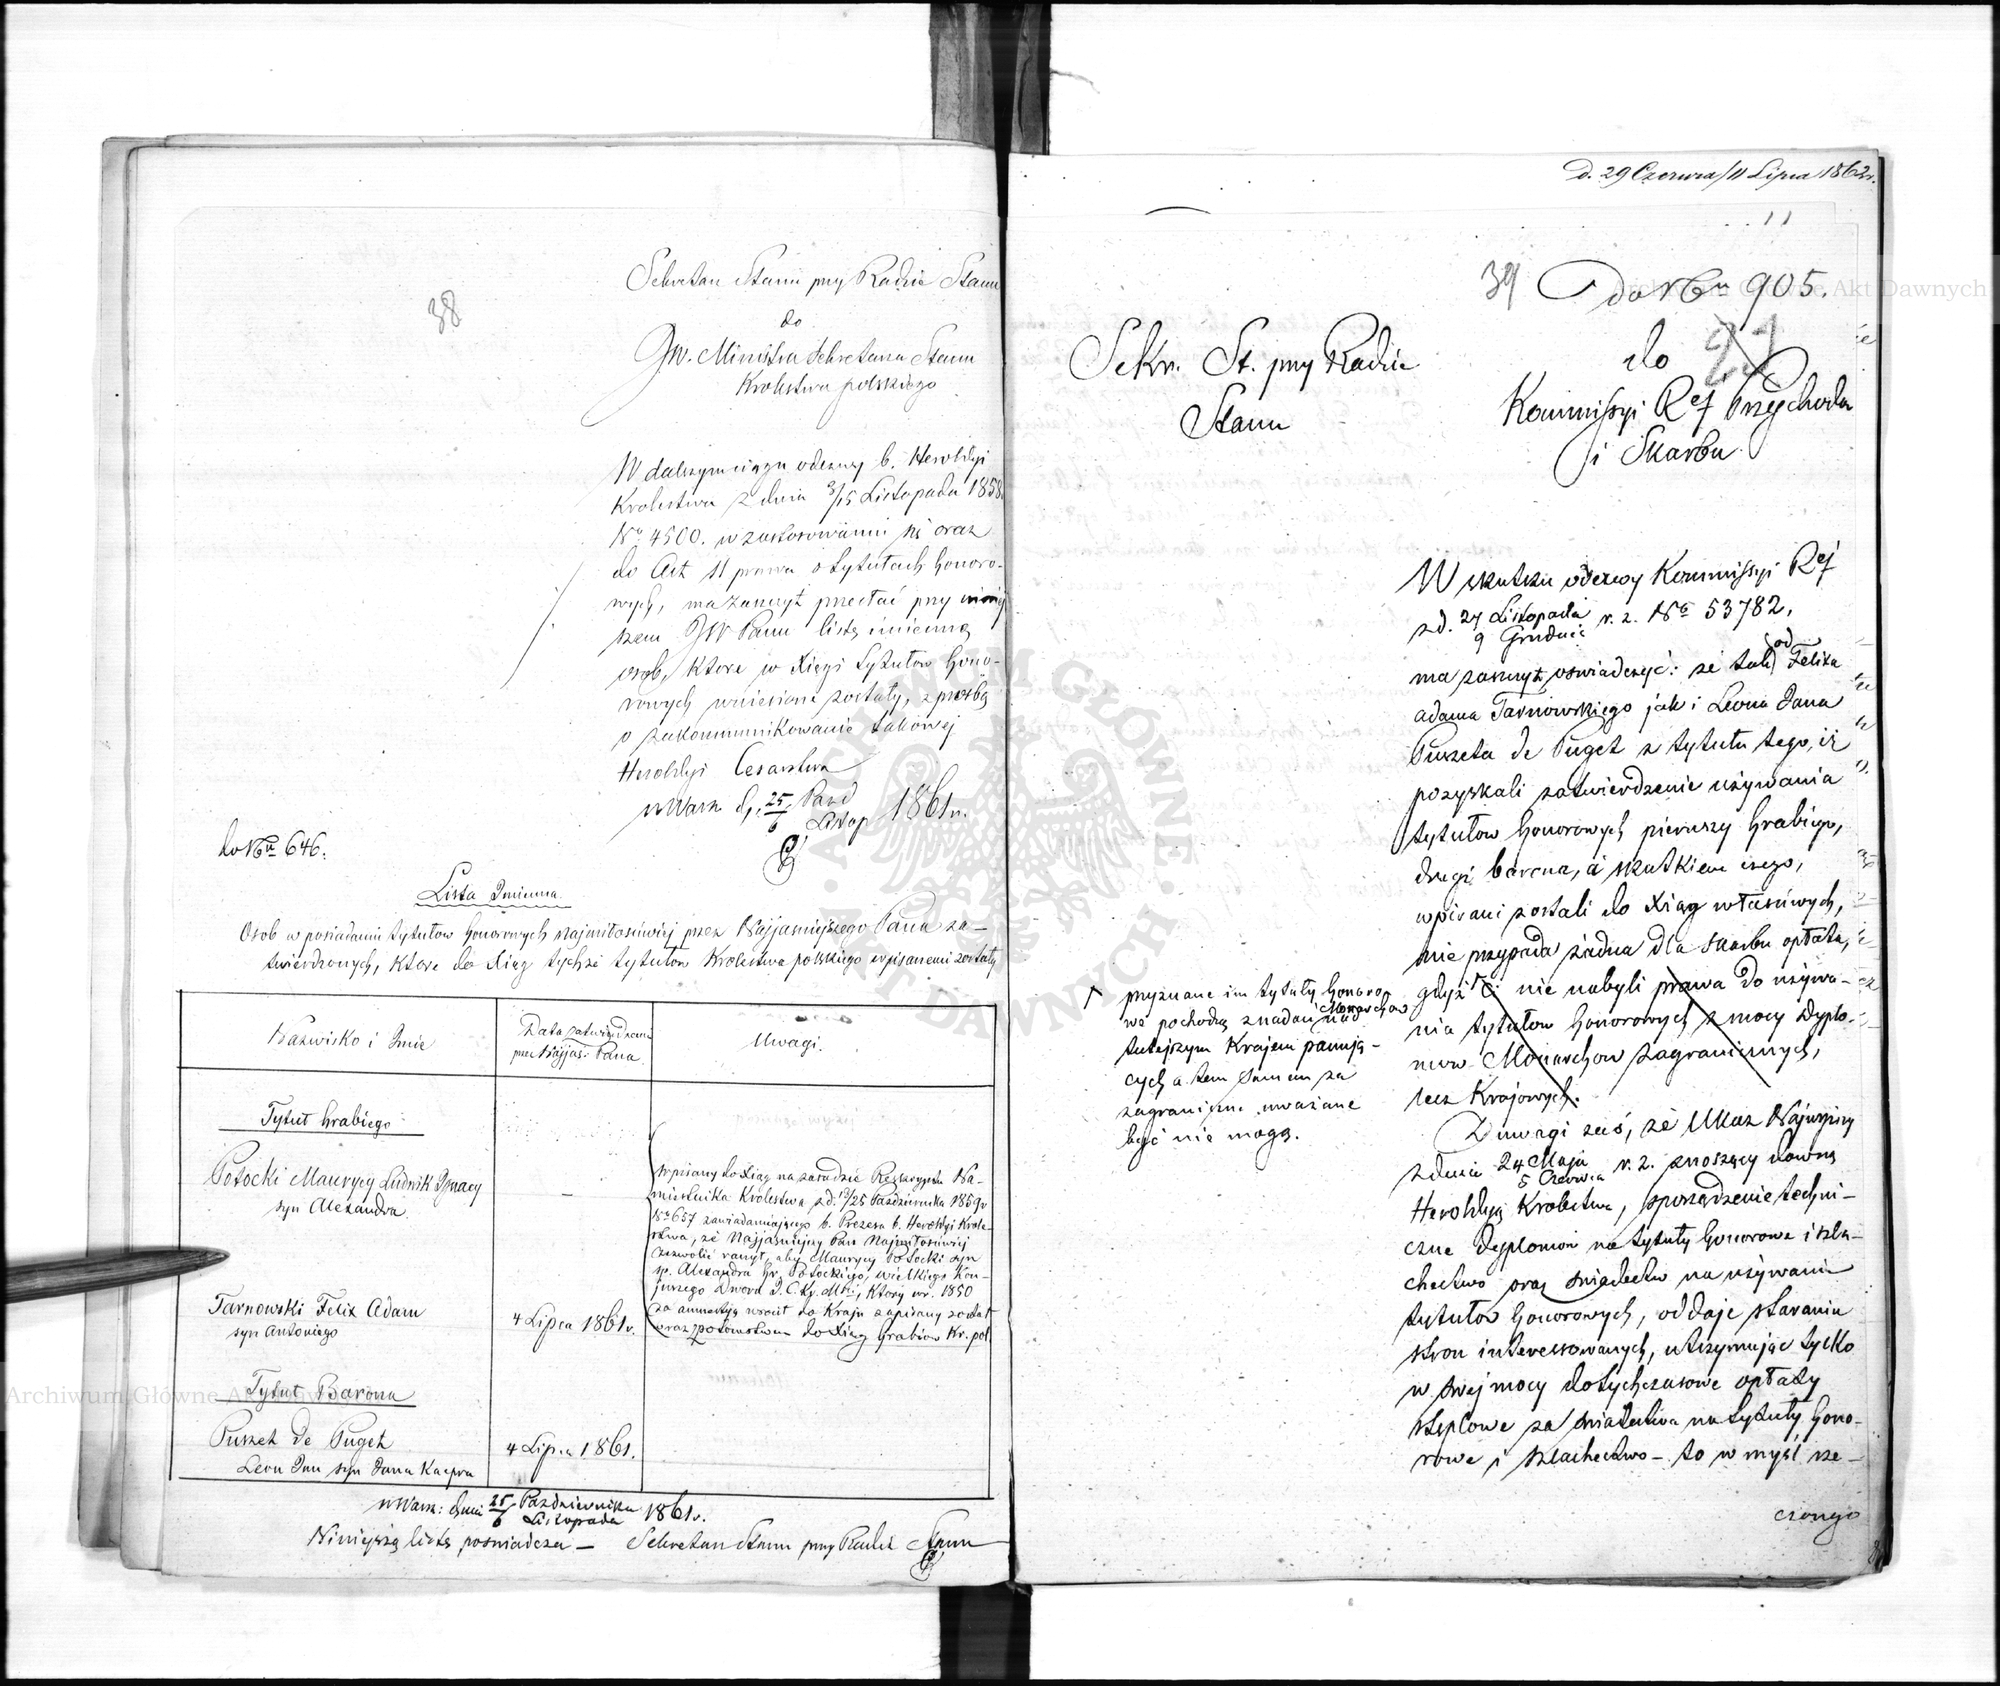 38
Sekretarz Stanu przy Radzie Stanu
do
JW. Ministra Sekretarza Stanu
Królestwa polskiego
W dalszym ciągu odezwy b. Heroldyi
Królestwa z dnia 3/15 Listopada 1858
No 4500. w zastosowaniu się oraz
do Art 11 prawa o tytułach honoro-
wych, ma zaszczyt przesłać przy niniej
szem JW Panu listę imienną
osob, które w Xięgi tytułów hono-
rowych wniesione zostały, z prośbą
o zakommunikowanie takowej
Heroldyi Cesarstwa
w Warsz d. 25/6 Pazd Listop 1861 r.
do Nru 646.
Lista Imienna
Osob w posiadaniu tytułow honorowych najmiłościwiej przez Najjaśniejszego Pana za-
twierdzonych, które do Xiąg tychże tytułów Królestwa polskiego wpisanemi zostały
Nazwisko i Imie
Data zatwierdzenia
przez Najjaś: Pana
Uwagi.
Tytuł hrabiego
Potocki Maurycy Ludwik Ignacy
syn Alexandra
Wpisany do Xiąg na zasadzie Reskryptu Na-
miestnika Królestwa z d. 13/25 Pazdziernika 1859 r
No 657 zawiadamiającego b. Prezesa b. Heroldyi Króle-
stwa, że Najjaśniejszy Pan Najmiłościwiej
zezwolić raczył, aby Maurycy Potocki syn
sp. Alexandra Hr. Potockiego, wielkiego Kon-
juszego Dworu J.C.Kr. Mci, który w r. 1850
za amnestyą wrócił do Kraju zapisany został
wraz z potomstwem do Xiąg hrabiow Kr. pol.
Tarnowski Felix Adam
syn Antoniego
4 Lipca 1861 r.
Tytuł Barona
Puszet de Puget
Leon Jan syn Jana Kacpra
4 Lipca 1861.
w Warsz: dnia 25/6 Pazdziernika Listopada 1861 r.
Niniejszą listę poswiadcza — Sekretarz Stanu przy Radzie Stanu
D. 29 Czerwca/11 Lipca 1862 r.
11
39
do Nru 905.
21
Sekr. St. przy Radzie
Stanu
do
Kommissyi Rej Przychodow
i Skarbu
W skutku odezwy Kommissyi Rej
z d. 27 Listopada 9 Grudnia r. z. No 53782,
ma zaszczyt oswiadczyć: że tak od Felixa
Adama Tarnowskiego jak i Leona Jana
Puszeta de Puget z tytułu tego, iż
pozyskali zatwierdzenie używania
tytułów honorowych pierwszy hrabiego,
drugi barona, a skutkiem czego,
wpisani zostali do Xiąg właściwych,
nie przypada żadna dla skarbu opłata,
gdyż ci nie nabyli prawa do używa-
nia tytułow honorowych z mocy dyplo-
mow Monarchow zagranicznych,
lecz Krajowych.
przyznane im tytuły honoro-
we pochodzą z nadań Monarchow
na tutejszym Krajem panują-
cych a tem samem za
zagraniczne uważane
być nie mogą.
Z uwagi zaś, że Ukaz Najwyższy
z dnia 24 Maja 5 Czerwca r. z. znoszący dawną
Heroldyą Królestwa, sporządzenie techni-
czne dyplomow na tytuły honorowe i szla-
chectwo oraz swiadectw na używanie
tytułow honorowych, oddaje staraniu
stron interessowanych, utrzymując tylko
w swej mocy dotychczasowe opłaty
stęplowe za swiadectwa na tytuły hono-
rowe i szlachectwo — to w myśl rze-
czonego
Archiwum Główne Akt Dawnych
Archiwum Główne Akt Dawnych
ARCHIWUM GŁÓWNE AKT DAWNYCH